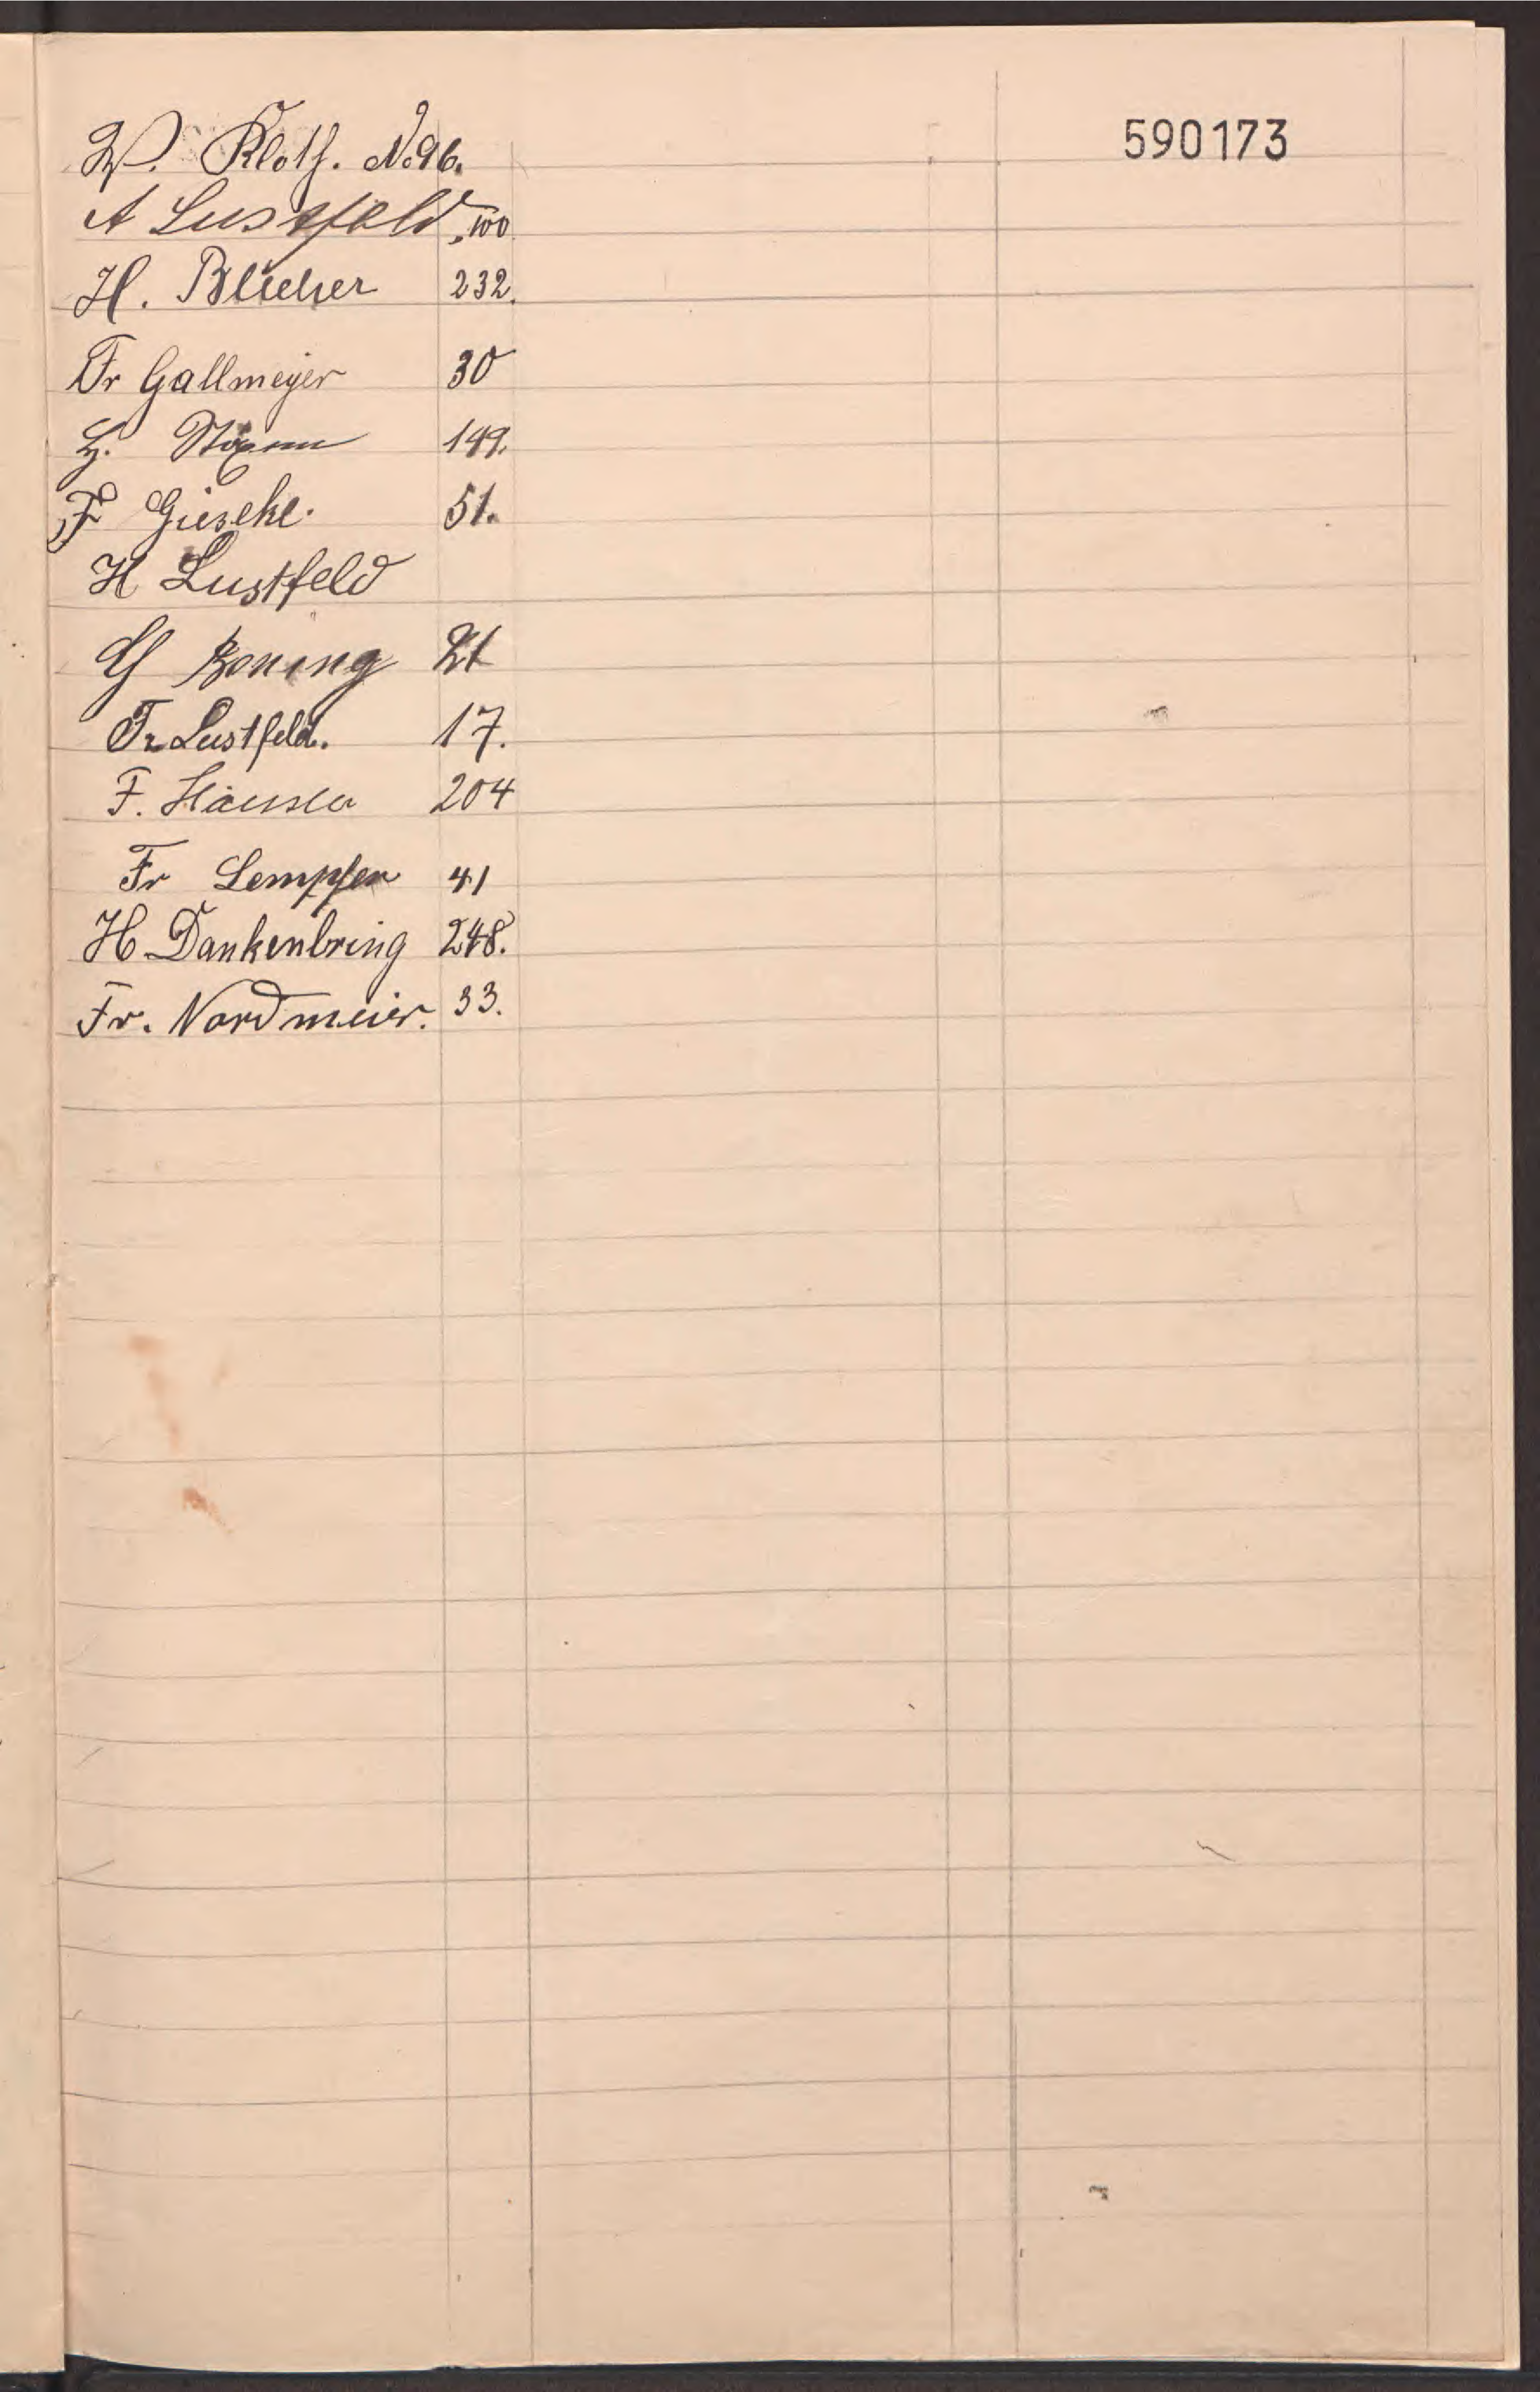 W. Kloth. No 96.
590173
A Lustfeld, 100
H. Blücher 232.
Fr Gallmeyer 30
H. 149.
F Gieseke. 51.
H Lustfeld
H Boning 21
Fr Lustfeld. 17.
F. 204
Fr Lempfer 41
H Dankenbring 248.
Fr. Nordmeier. 33.